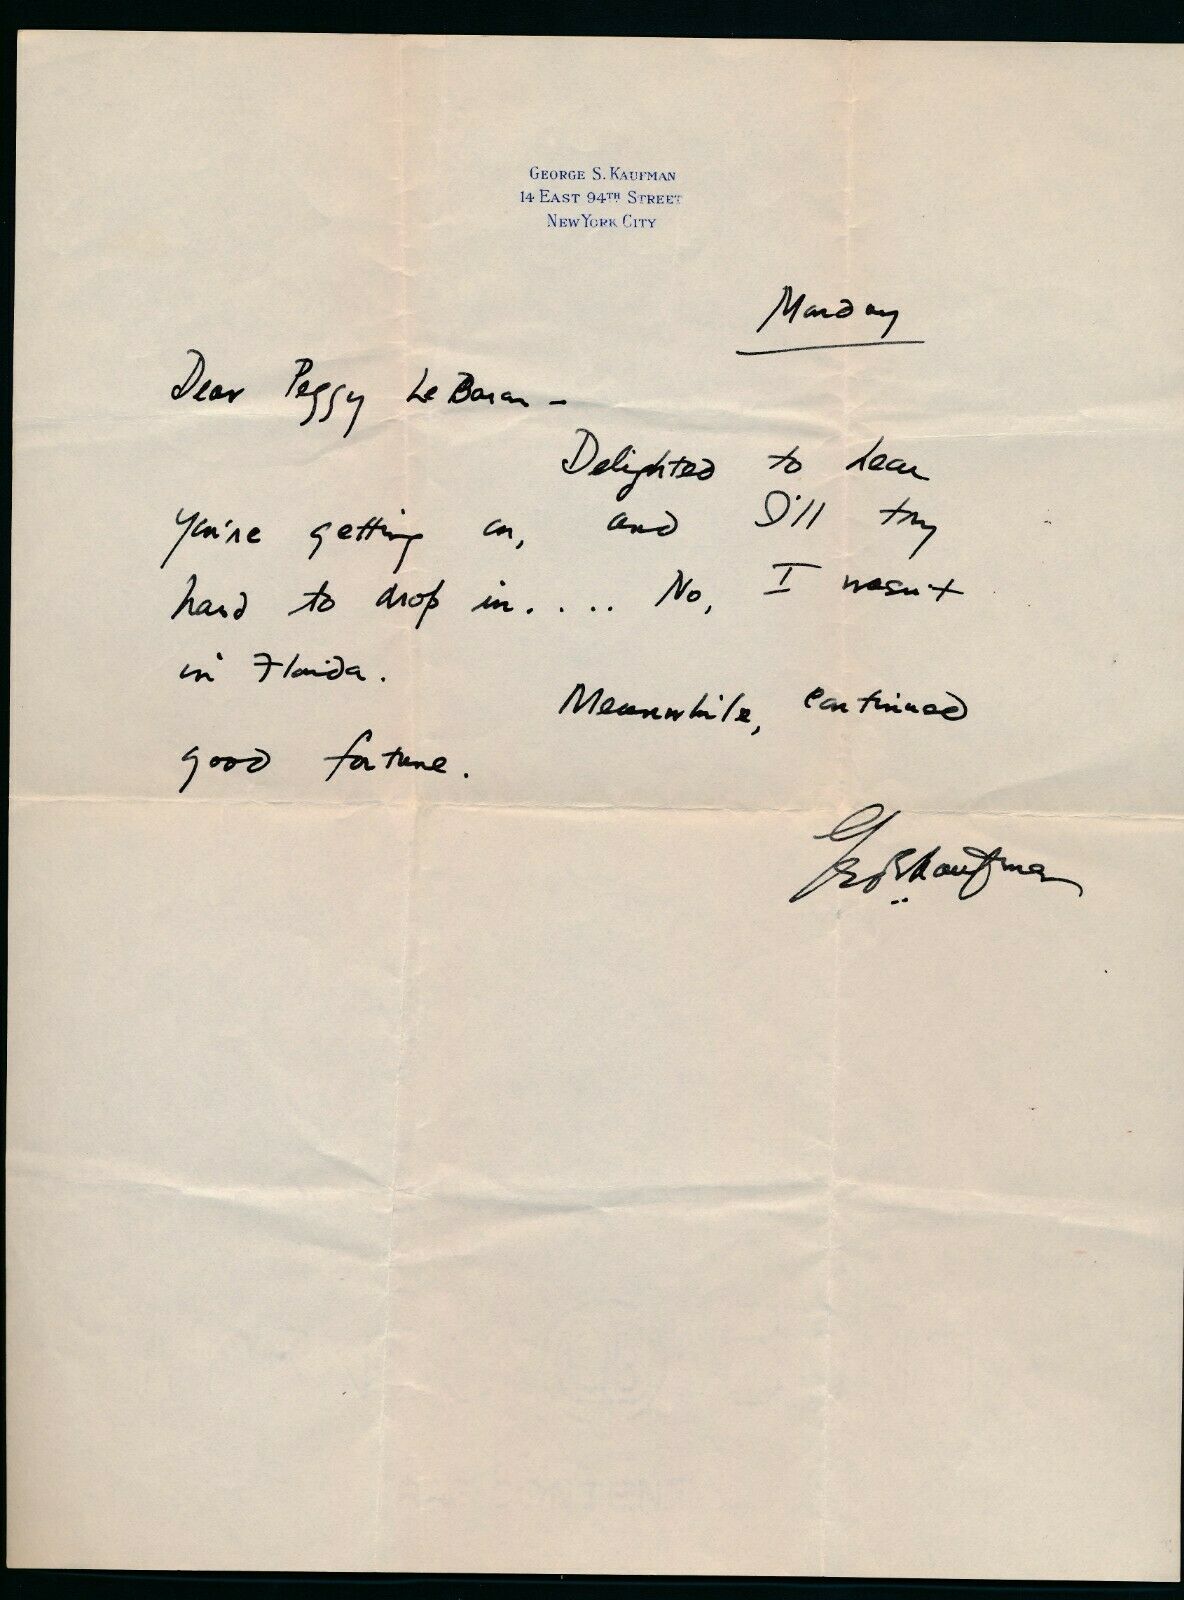 GEORGE S. KAUFMAN
14 EAST 94TH STREET
NEW YORK CITY
Monday
Dear Peggy LeBaron –
Delighted to hear
you're getting on, and I'll try
hard to drop in. . . . No, I wasn't
in Florida.
Meanwhile, continued
good fortune.
Geo S Kaufman